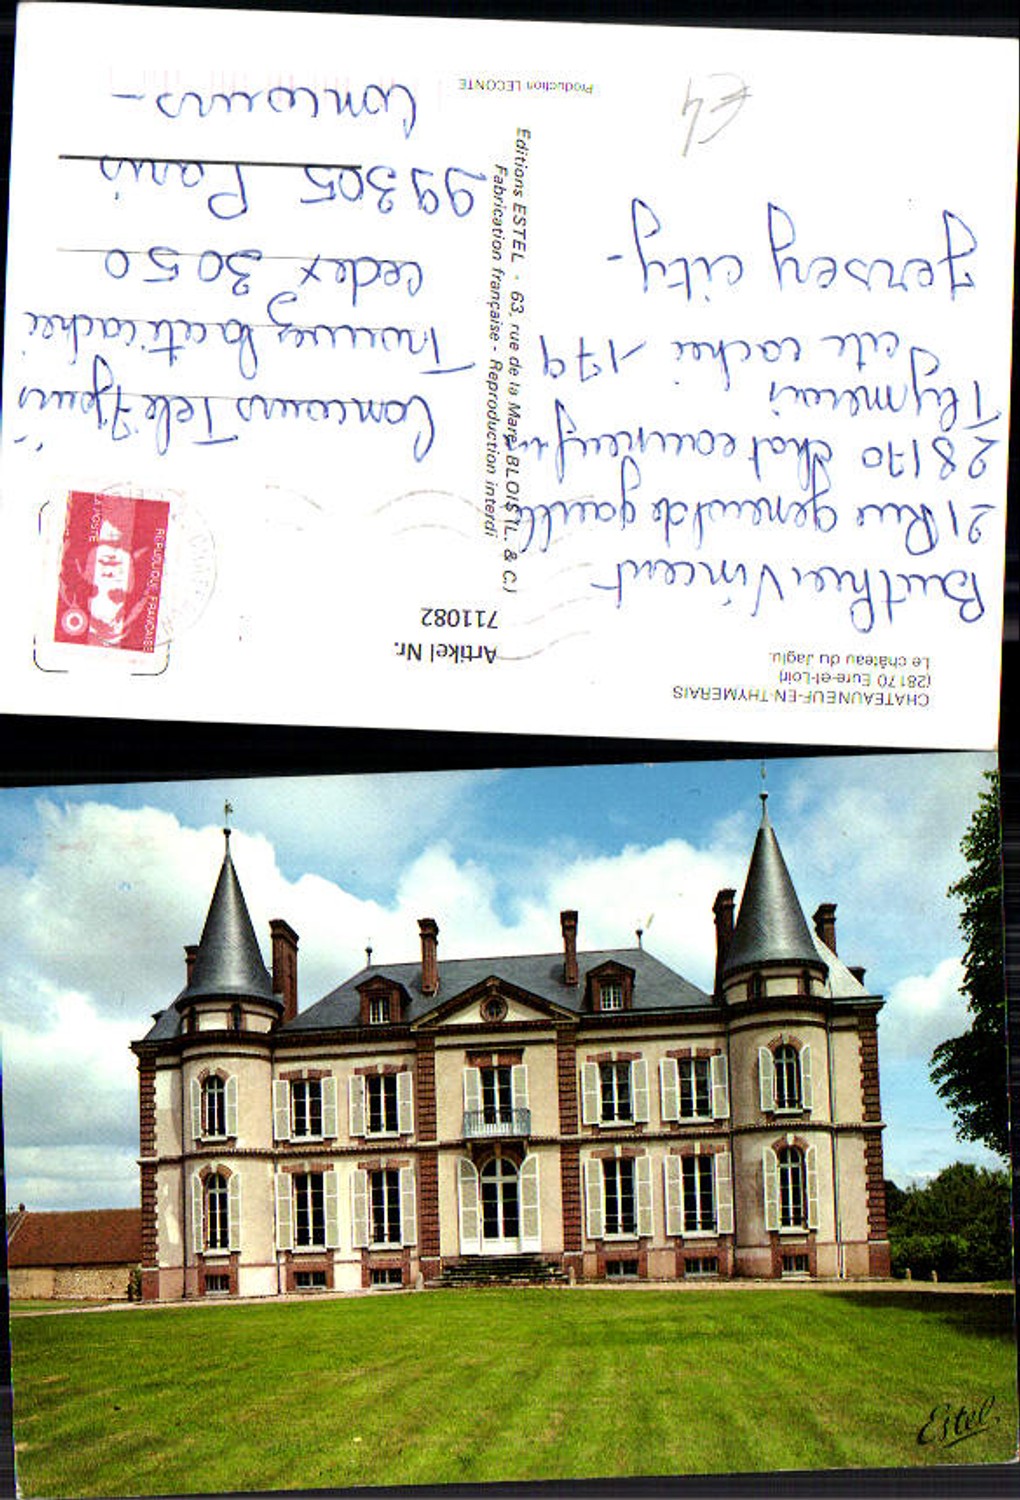 CHATEAUNEUF-EN-THYMERAIS
(28170 Eure-et-Loir)
Le château du Jaglu.
Artikel Nr.
711082
REPUBLIQUE FRANÇAISE
LA POSTE
Vincent
21 Rue general de gaulle
28170 Chateauneuf en
Thymerais
cite cachée 179
Jersey city-
Concours Télé 7 jours
Trouvez la cité cachée
cedex 3050
99305 Paris
Concours-
Editions ESTEL - 63, rue de la Mare BLOIS (L. & C.)
Fabrication française - Reproduction interdi
Production LECONTE
€4
Estel